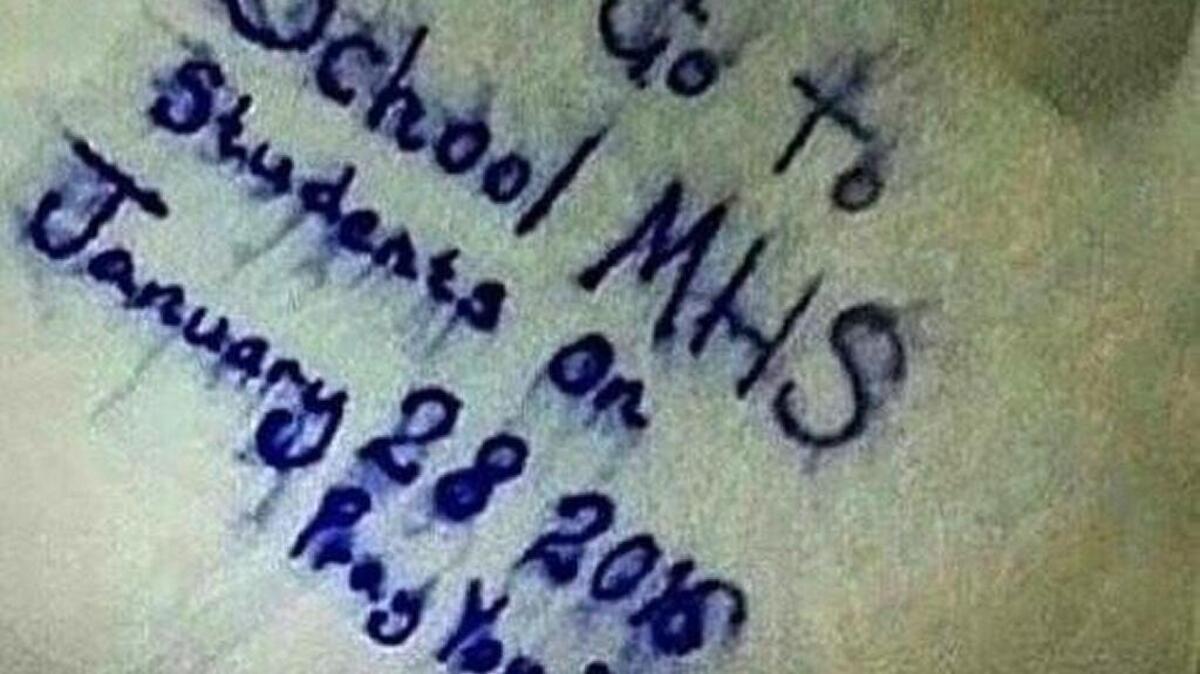 Go To
School MHS
Students On
January 28 2016
Pray You